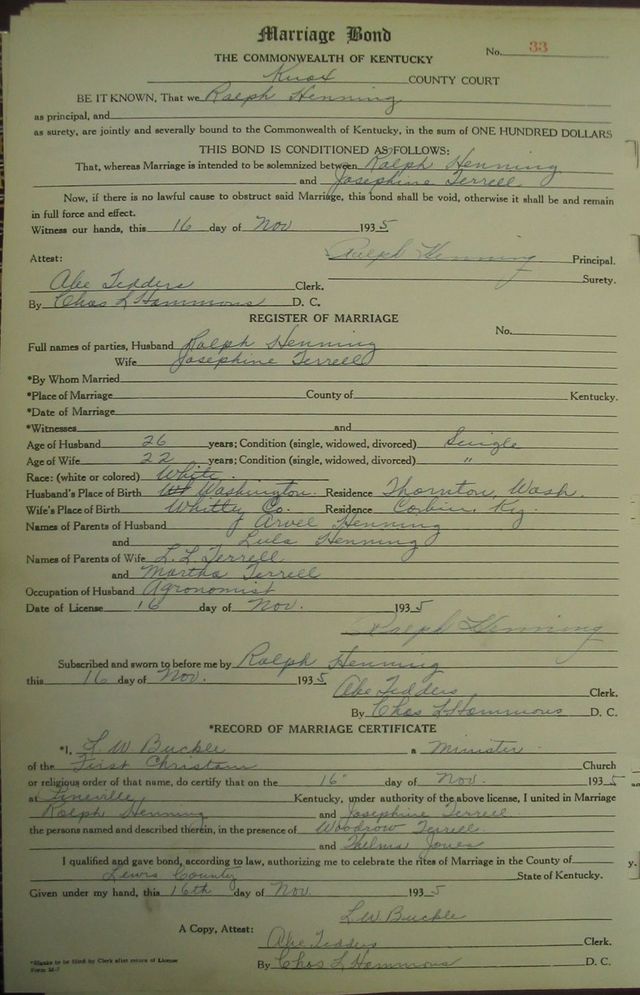 Marriage Bond
No. 33
THE COMMONWEALTH OF KENTUCKY
Knox COUNTY COURT
BE IT KNOWN, That we Ralph Henning
as principal, and
as surety, are jointly and severally bound to the Commonwealth of Kentucky, in the sum of ONE HUNDRED DOLLARS
THIS BOND IS CONDITIONED AS FOLLOWS:
That, whereas Marriage is intended to be solemnized between Ralph Henning
and Josephine Terrell
Now, if there is no lawful cause to obstruct said Marriage, this bond shall be void, otherwise it shall be and remain
in full force and effect.
Witness our hands, this 16 day of Nov 1935
Ralph Henning Principal.
Attest:
Surety.
Abe Tedders Clerk.
By Chas L Hammons D. C.
REGISTER OF MARRIAGE
No.
Full names of parties, Husband Ralph Henning
Wife Josephine Terrell
*By Whom Married
*Place of Marriage County of Kentucky.
*Date of Marriage
*Witnesses and
Age of Husband 26 years; Condition (single, widowed, divorced) Single
Age of Wife 22 years; Condition (single, widowed, divorced) "
Race: (white or colored) White
Husband's Place of Birth Washington. Residence Thornton, Wash.
Wife's Place of Birth Whitley Co. Residence Corbin, Ky.
Names of Parents of Husband Arvel Henning
and Lula Henning
Names of Parents of Wife L. L. Terrell
and Martha Terrell
Occupation of Husband Agronomist
Date of License 16 day of Nov. 1935
Ralph Henning
Subscribed and sworn to before me by Ralph Henning
this 16 day of Nov. 1935
Abe Tedders Clerk.
By Chas L Hammons D. C.
*RECORD OF MARRIAGE CERTIFICATE
*I, L W Buckle a Minister
of the First Christian Church
or religious order of that name, do certify that on the 16" day of Nov. 1935
at Pineville Kentucky, under authority of the above license, I united in Marriage
Ralph Henning and Josephine Terrell
the persons named and described therein, in the presence of Woodrow Terrell
and Thelma Jones
I qualified and gave bond, according to law, authorizing me to celebrate the rites of Marriage in the County of
Lewis County State of Kentucky.
Given under my hand, this 16th day of Nov. 1935
L.W. Buckle
A Copy, Attest:
Abe Tedders Clerk.
By Chas L Hammons D. C.
*Blanks to be filled by Clerk after return of License